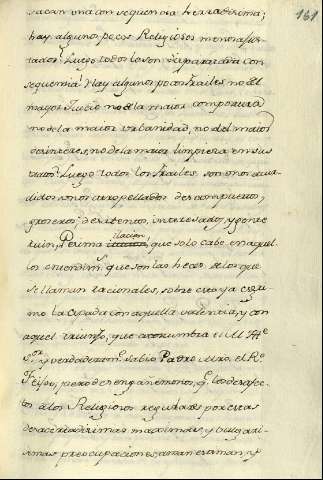 161
sacan una consequencia herradisima;
hay algunos pocos Religiosos menos ajus-
tados: Luego todos lo son disparatada con
sequensia! Hay algunos pocos frailes no del
mayor Juicio no de la maior compostura
no de la maior urbanidad, no del maior
desinteres, no de la maior limpieza en sus
tratos: Luego todos los frailes son unos atur-
didos, unos atropellados descompuestos,
groseros, desatentos, interesados, y gente
ruin, Pesima ilacion, que solo cabe en aquel
los entendimtos. que son las heces de los que
se llaman racionales, sobre esto ya esgri-
mio la espada con aquella valentia, y con
aquel triunfo, que acostumbra el Il
Sor. y verdaderamte. sabio Padre Mro. el Re
Feijoo, pero desengañemonos, q los desafec
tos a los Religiosos regulares por estas
desacertadisimas maximas, y vulgari-
simas preocupaciones, aman esaman, y